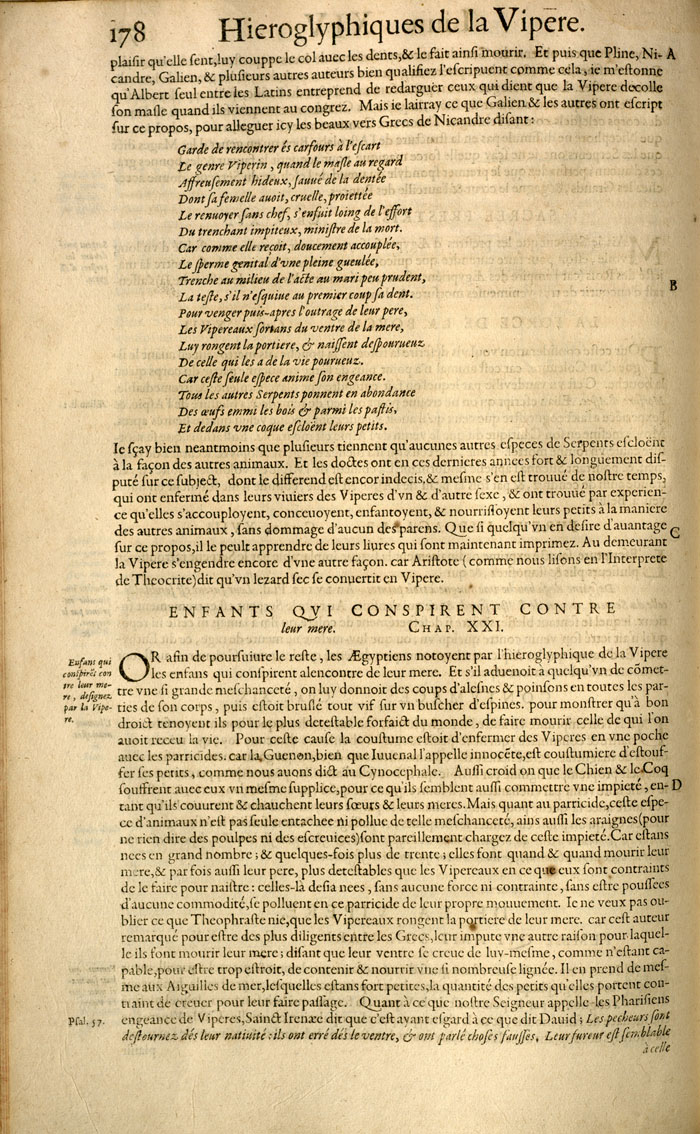 178 Hieroglyphiques de la Vipere.
plaisir qu'elle sent, luy couppe le col auec les dents, & le fait ainsi mourir. Et puis que Pline, Ni- A
candre, Galien, & plusieurs autres auteurs bien qualifiez l'escripuent comme cela, ie m'estonne
qu'Albert seul entre les Latins entreprend de redarguer ceux qui dient que la Vipere decolle
son masle quand ils viennent au congrez. Mais ie lairray ce que Galien & les autres ont escript
sur ce propos, pour alleguer icy les beaux vers Grecs de Nicandre disant:
Garde de rencontrer és carfours à l'escart
Le genre Viperin, quand le masle au regard
Affreusement hideux, sauué de la dentée
Dont sa femelle auoit, cruelle, proiettée
Le renuoyer sans chef, s'enfuit loing de l'effort
Du trenchant impiteux, ministre de la mort.
Car comme elle reçoit, doucement accouplée,
Le sperme genital d'vne pleine gueulée,
Trenche au milieu de l'acte au mari peu prudent,
La teste, s'il n'esquiue au premier coup sa dent. B
Pour venger puis-apres l'outrage de leur pere,
Les Vipereaux sortans du ventre de la mere,
Luy rongent la portiere, & naissent despourueuz
De celle qui les a de la vie pourueuz.
Car ceste seule espece anime son engeance.
Tous les autres Serpents ponnent en abondance
Des œufs emmi les bois & parmi les pastis,
Et dedans vne coque escloënt leurs petits.
Ie sçay bien neantmoins que plusieurs tiennent qu'aucunes autres especes de Serpents escloënt
à la façon des autres animaux. Et les doctes ont en ces dernieres annees fort & longuement dis-
puté sur ce subiect, dont le differend est encor indecis, & mesme s'en est trouué de nostre temps,
qui ont enfermé dans leurs viuiers des Viperes d'vn & d'autre sexe, & ont trouué par experien-
ce qu'elles s'accouployent, conceuoyent, enfantoyent, & nourrissoyent leurs petits à la maniere
des autres animaux, sans dommage d'aucun des parens. Que si quelqu'vn en desire d'auantage C
sur ce propos, il le peult apprendre de leurs liures qui sont maintenant imprimez. Au demeurant
la Vipere s'engendre encore d'vne autre façon. car Aristote (comme nous lisons en l'Interprete
de Theocrite) dit qu'vn lezard sec se conuertit en Vipere.
ENFANTS QVI CONSPIRENT CONTRE
leur mere. CHAP. XXI.
Enfans qui
conspirés con
tre leur me-
re, designez
par la Vipe-
re.
OR afin de poursuiure le reste, les Ægyptiens notoyent par l'hieroglyphique de la Vipere
les enfans qui conspirent alencontre de leur mere. Et s'il aduenoit à quelqu'vn de cõmet-
tre vne si grande meschanceté, on luy donnoit des coups d'alesnes & poinsons en toutes les par-
ties de son corps, puis estoit bruslé tout vif sur vn buscher d'espines. pour monstrer qu'à bon
droict tenoyent ils pour le plus detestable forfaict du monde, de faire mourir celle de qui l'on
auoit receu la vie. Pour ceste cause la coustume estoit d'enfermer des Viperes en vne poche
auec les parricides. car la Guenon, bien que Iuuenal l'appelle innocẽte, est coustumiere d'estouf-
fer ses petits, comme nous auons dict au Cynocephale. Aussi croid on que le Chien & le Coq
souffrent auec eux vn mesme supplice, pour ce qu'ils semblent aussi commettre vne impieté, en- D
tant qu'ils couurent & chauchent leurs sœurs & leurs meres. Mais quant au parricide, ceste espe-
ce d'animaux n'est pas seule entachee ni pollue de telle meschanceté, ains aussi les araignes (pour
ne rien dire des poulpes ni des escreuices) sont pareillement chargez de ceste impieté. Car estans
nees en grand nombre; & quelques-fois plus de trente; elles font quand & quand mourir leur
mere, & par fois aussi leur pere, plus detestables que les Vipereaux en ce que eux sont contraints
de le faire pour naistre: celles-là desia nees, sans aucune force ni contrainte, sans estre poussees
d'aucune commodité, se polluent en ce parricide de leur propre mouuement. Ie ne veux pas ou-
blier ce que Theophraste nie, que les Vipereaux rongent la portiere de leur mere. car cest auteur
remarqué pour estre des plus diligents entre les Grecs, leur impute vne autre raison pour laquel-
le ils font mourir leur mere; disant que leur ventre se creue de luy-mesme, comme n'estant ca-
pable, pour estre trop estroit, de contenir & nourrir vne si nombreuse lignée. Il en prend de mes-
me aux Aiguilles de mer, lesquelles estans fort petites, la quantité des petits qu'elles portent con-
traint de creuer pour leur faire passage. Quant à ce que nostre Seigneur appelle les Pharisiens
Psal. 57. engeance de Vipères, Sainct Irenæe dit que c'est ayant esgard à ce que dit Dauid; Les pecheurs sont
destournez dés leur natiuité: ils ont erré dés le ventre, & ont parlé choses fausses, Leur fureur est semblable
à celle